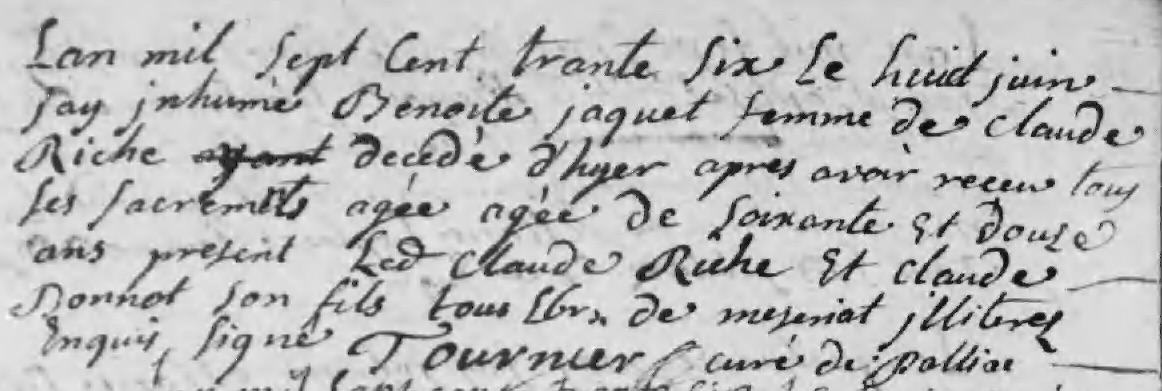 Lan mil sept Cent trante six Le huict juin
jay jnhumé Benoite jaquet femme de claude
Riche ayant decedé d'hyer apres avoir receu tous
ses sacremts agée agée de soixante Et douze
ans present Led Claude Riche Et claude
Bonnot son fils tous Lbrs de meseriat jlliteres
Enquis, signé Tournier curé de polliac